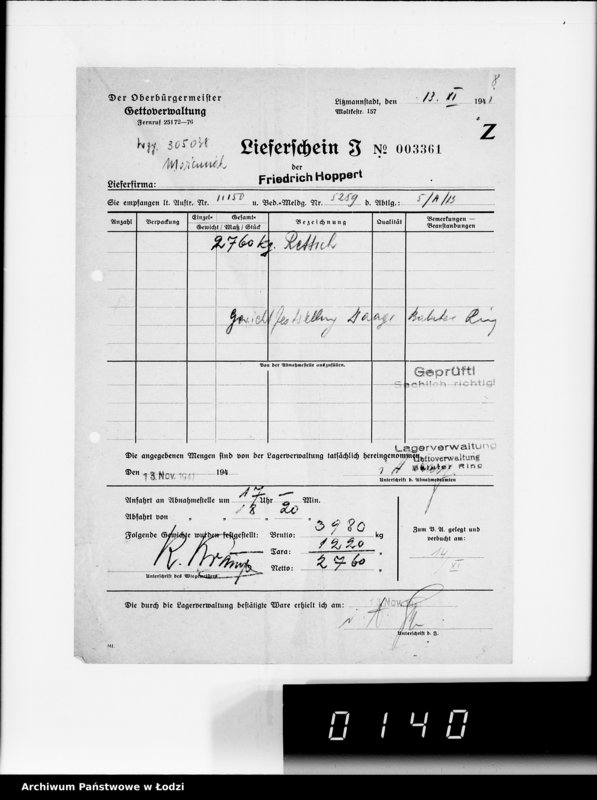 8
Der Oberbürgermeister
Gettoverwaltung
Fernruf 25172—76
Litzmannstadt, den 13. XI 1941
Moltkestr. 157
Z
305038
Lieferschein J № 003361
der
Friedrich Hoppert
Lieferfirma:
Sie empfangen lt. Auftr. Nr. 11150 u. Bed.-Meldg. Nr. 5259 d. Abtlg.: 5/A/13
Anzahl Verpackung Einzel- Gesamt- Bezeichnung Qualität Bemerkungen —
Gewicht / Maß / Stück Beanstandungen
2760 kg. Rettich
Gewichtfeststellung Waage Baluter Ring
Von der Abnahmestelle auszufüllen.
Geprüft!
Sachlich richtig!
Die angegebenen Mengen sind von der Lagerverwaltung tatsächlich hereingenommen
Lagerverwaltung
Gettoverwaltung
Baluter Ring
Den 13. Nov. 1941 194
Unterschrift d. Abnahmebeamten
Anfahrt an Abnahmestelle um 17 Uhr — Min.
Abfahrt von " " " 18 " 20 "
Folgende Gewichte wurden festgestellt: Brutto: 3980 kg
Tara: 1220 "
Netto: 2760 "
Unterschrift des Wiegemeisters
Zum B. A. gelegt und
verbucht am:
14
XI
Die durch die Lagerverwaltung bestätigte Ware erhielt ich am:
Nov.
Unterschrift d. J.
0140
Archiwum Państwowe w Łodzi